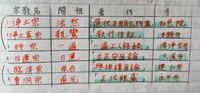 宗教名 開祖 著作 寺
浄土宗 法然 選択本願念仏集 知恩院
浄土真宗 親鸞 教行信証 本願寺
時宗 一遍 一遍上人語録
日蓮宗 日蓮 立正安国論 久遠寺
臨済宗 栄西 興禅護国論 建仁寺
曹洞宗 道元 正法眼蔵 永平寺